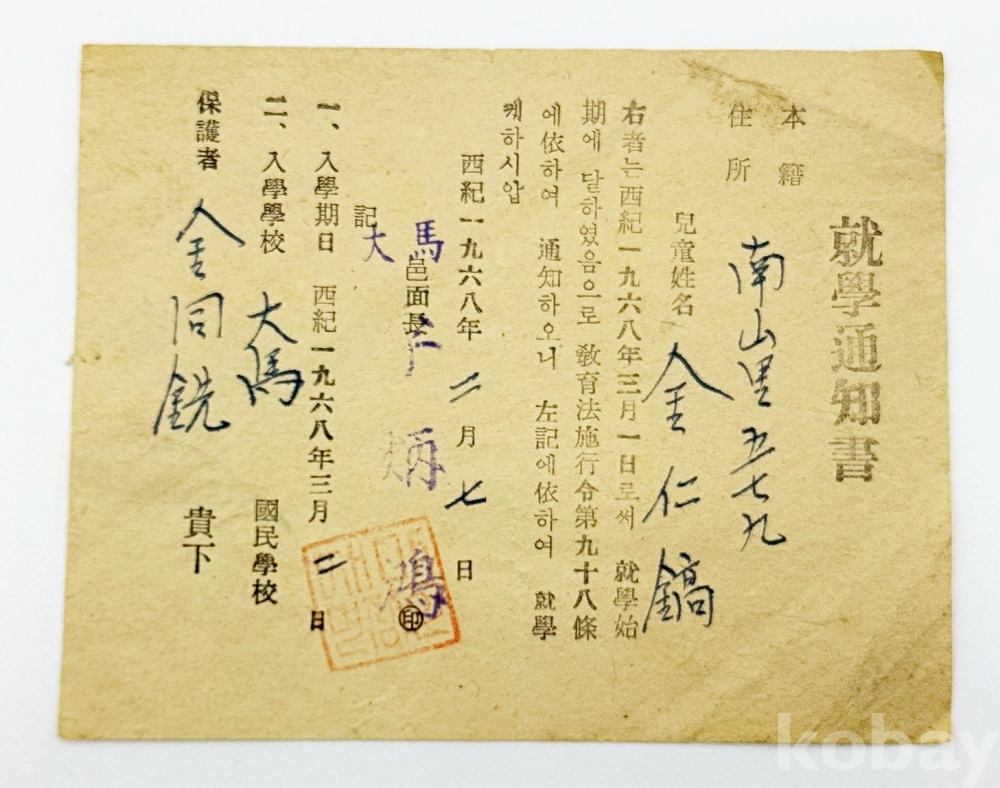 就學通知書
本籍
住所 南山里 五七九
兒童姓名 金仁鎬
右者는 西紀一九六八年三月一日로써 就學始
期에 달하였음으로 敎育法施行令第九十八條
에依하여 通知하오니 左記에依하여 就學
케하시압
西紀一九六八年 二月 七日
馬邑面長 炳鴻 ㊞
記
大
一、入學期日 西紀一九六八年三月 二日
二、入學學校 大馬 國民學校
保護者 金同銑 貴下
kobay